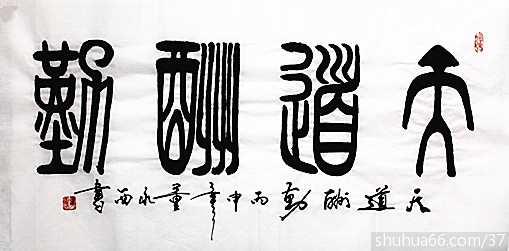 天道酬勤
天道酬勤丙申年董永西書
shuhua66.com/37